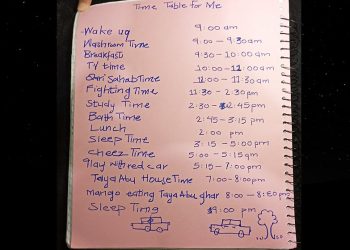 Time Table for Me
Wake up 9:00 am
Washroom Time 9:00 - 9:30am
Breakfast 9:30 - 10:00am
TV time 10:00 - 11:00am
Sahab Time 11:00 - 11:30am
Fighting Time 11:30 - 2:30pm
Study Time 2:30 - 2:45pm
Bath Time 2:45 - 3:15pm
Lunch 2:00 pm
Sleep Time 3:15 - 5:00pm
cheez Time 5:00 - 5:15am
Play with red car 5:15 - 7:00pm
Taya Abu House Time 7:00 - 8:00pm
Mango eating Taya Abu ghar 8:00 - 8:50pm
Sleep Time 9:00 pm